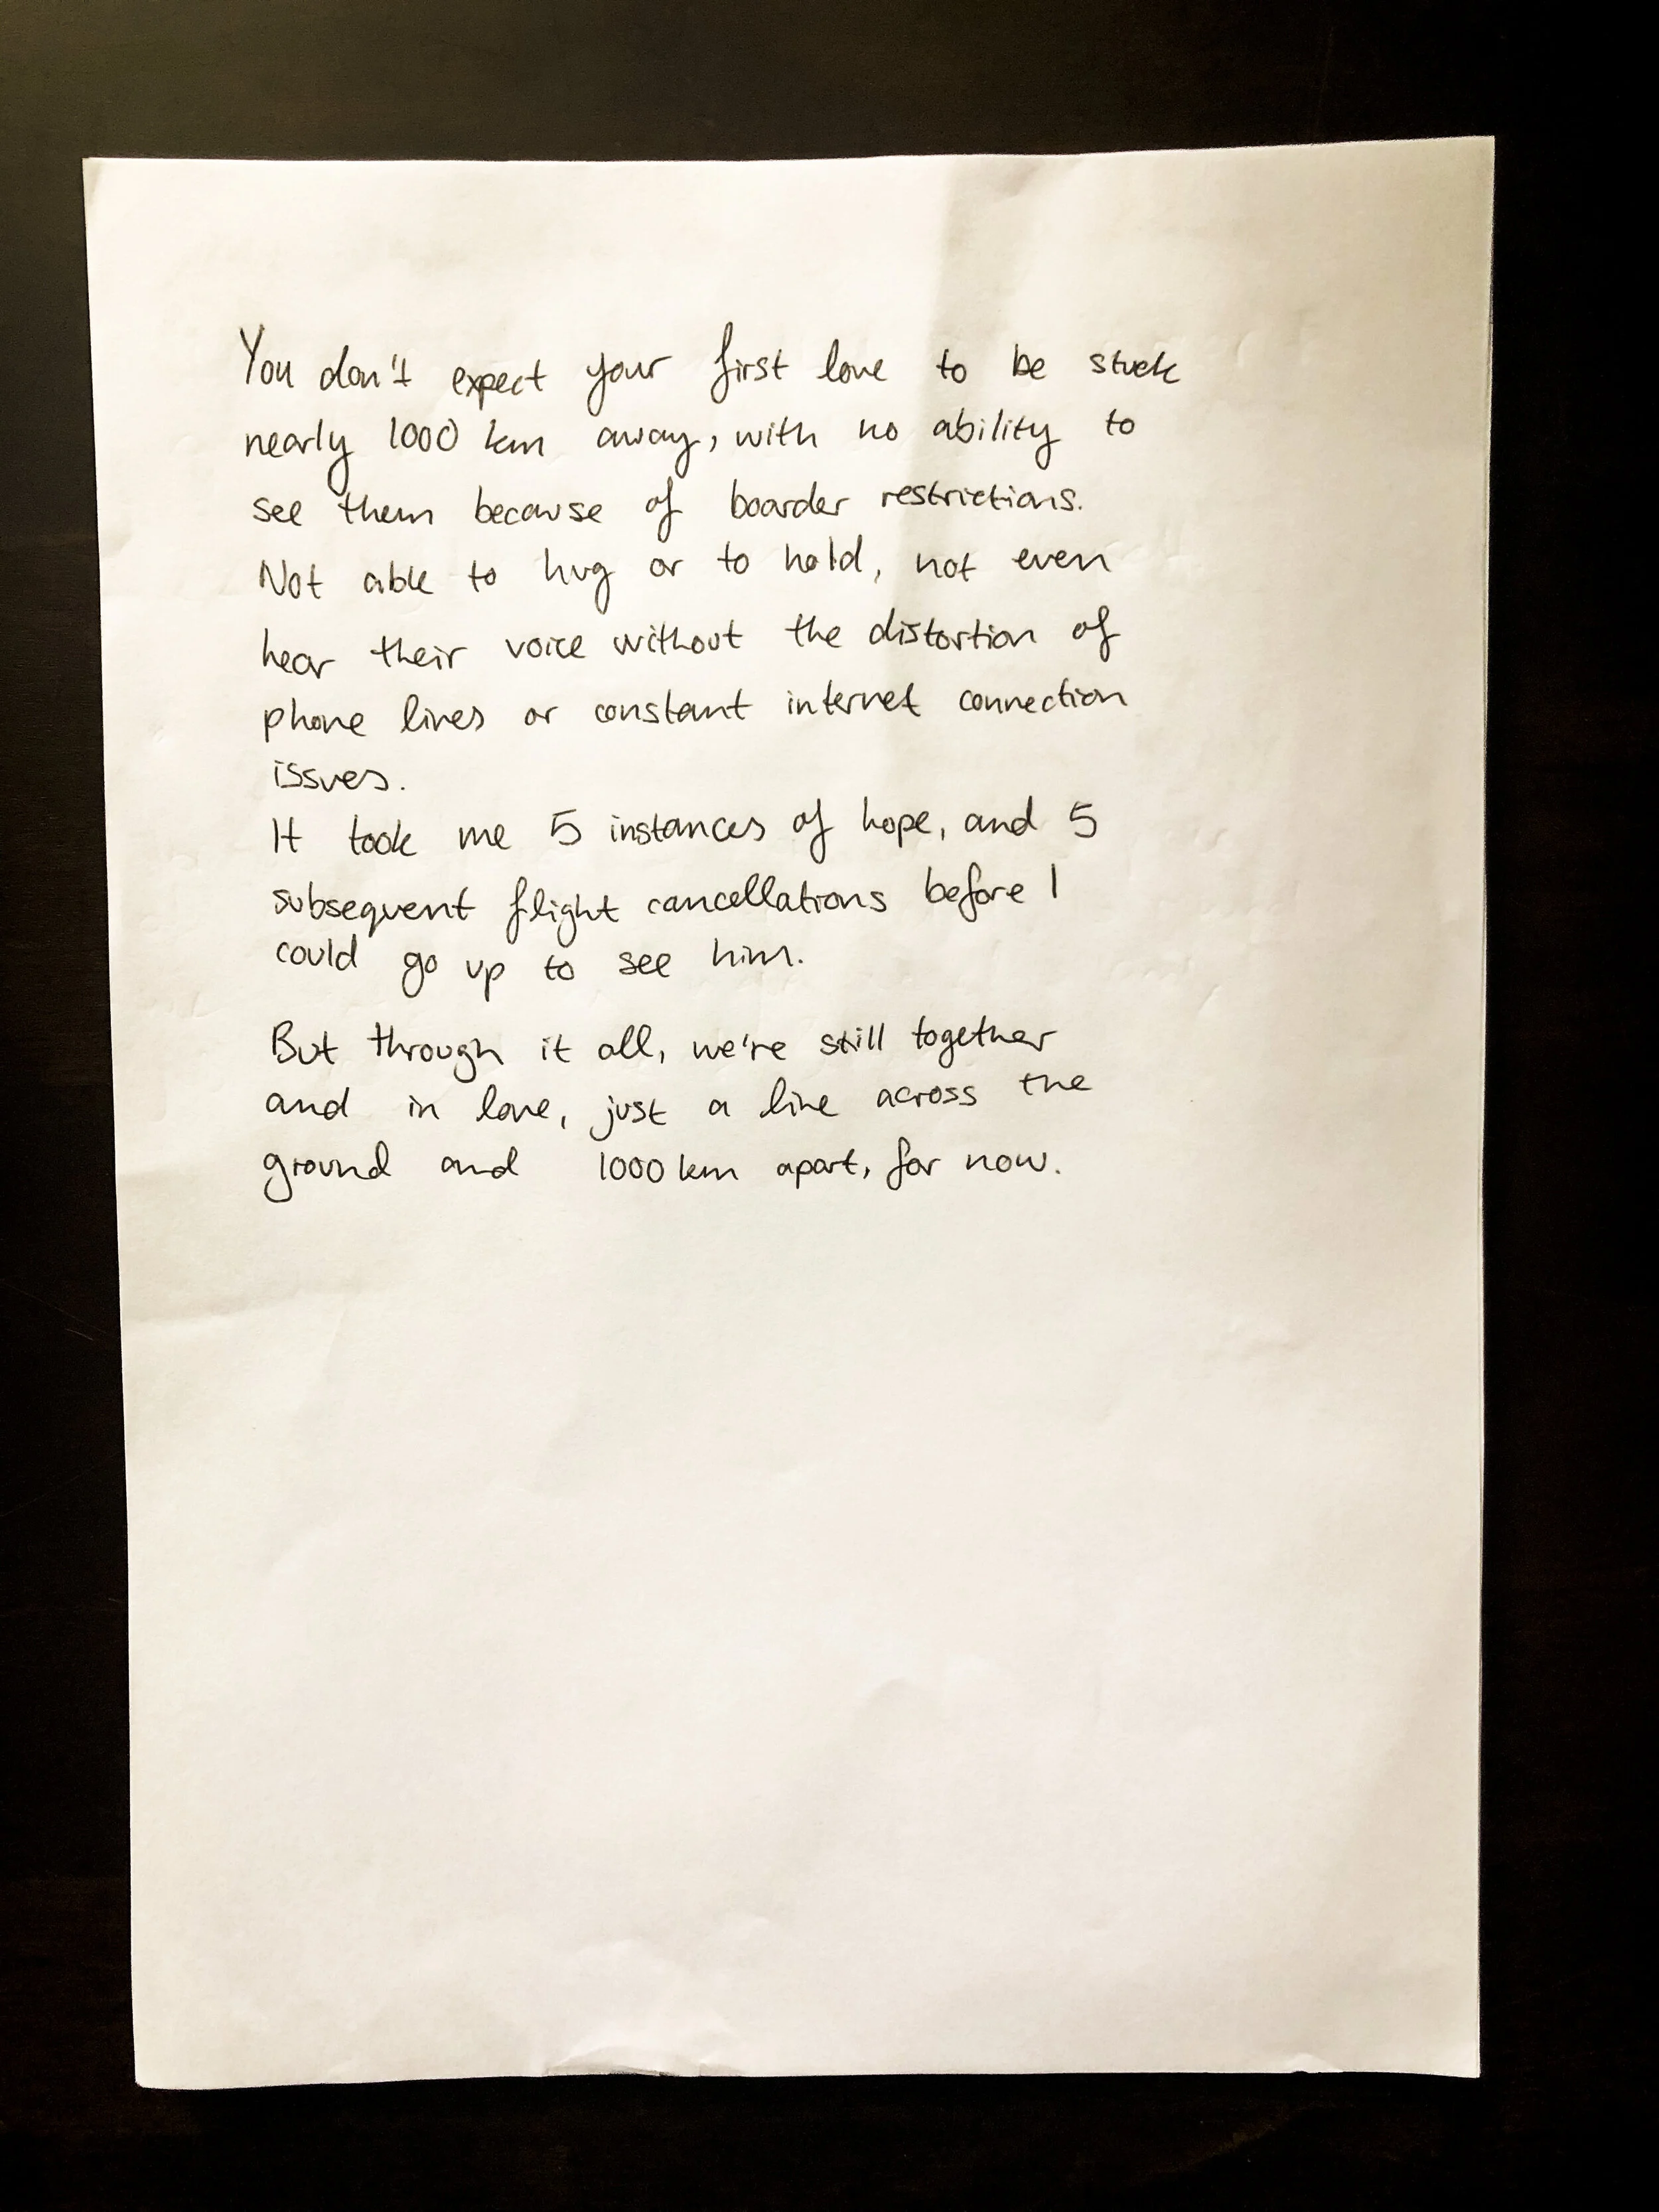 You don't expect your first love to be stuck
nearly 1000 km away, with no ability to
see them because of boarder restrictions.
Not able to hug or to hold, not even
hear their voice without the distortion of
phone lines or constant internet connection
issues.
It took me 5 instances of hope, and 5
subsequent flight cancellations before I
could go up to see him.
But through it all, we're still together
and in love, just a line across the
ground and 1000 km apart, for now.